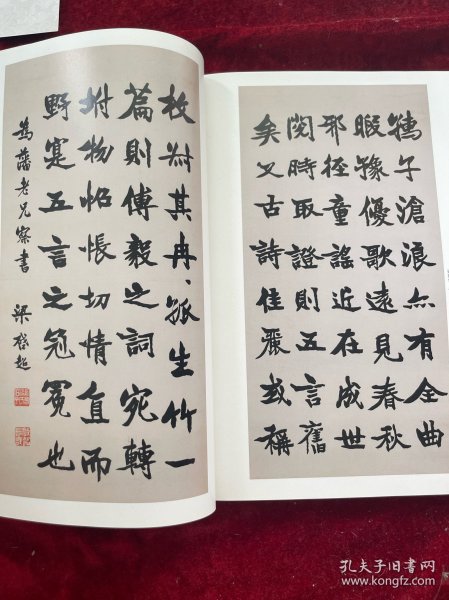 孺子滄浪亦有全曲
暇豫優歌遠見春秋
邪徑童謠近在成世
閱時取證則五言舊
矣又古詩佳麗或稱
枚叔其冉、孤生竹一
篇則傅毅之詞宛轉
坿物怊悵切情直而
野寔五言之冠冕也
為藩老兄察書 梁啓超
孔夫子旧书网
www.kongfz.com